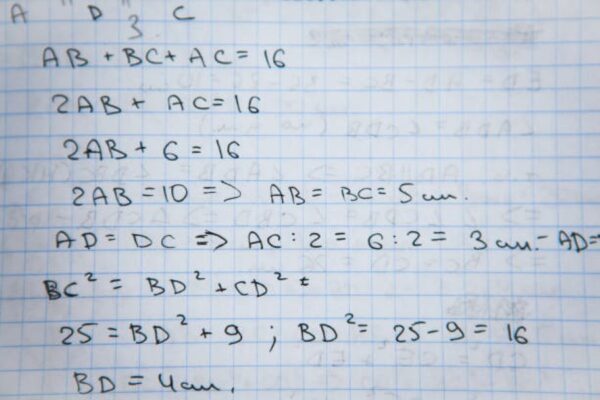 A D C
3.
AB + BC + AC = 16
2AB + AC = 16
2AB + 6 = 16
2AB = 10 => AB = BC = 5 см.
AD = DC => AC : 2 = 6 : 2 = 3 см. - AD =
BC² = BD² + CD²
25 = BD² + 9 ; BD² = 25 - 9 = 16
BD = 4 см.